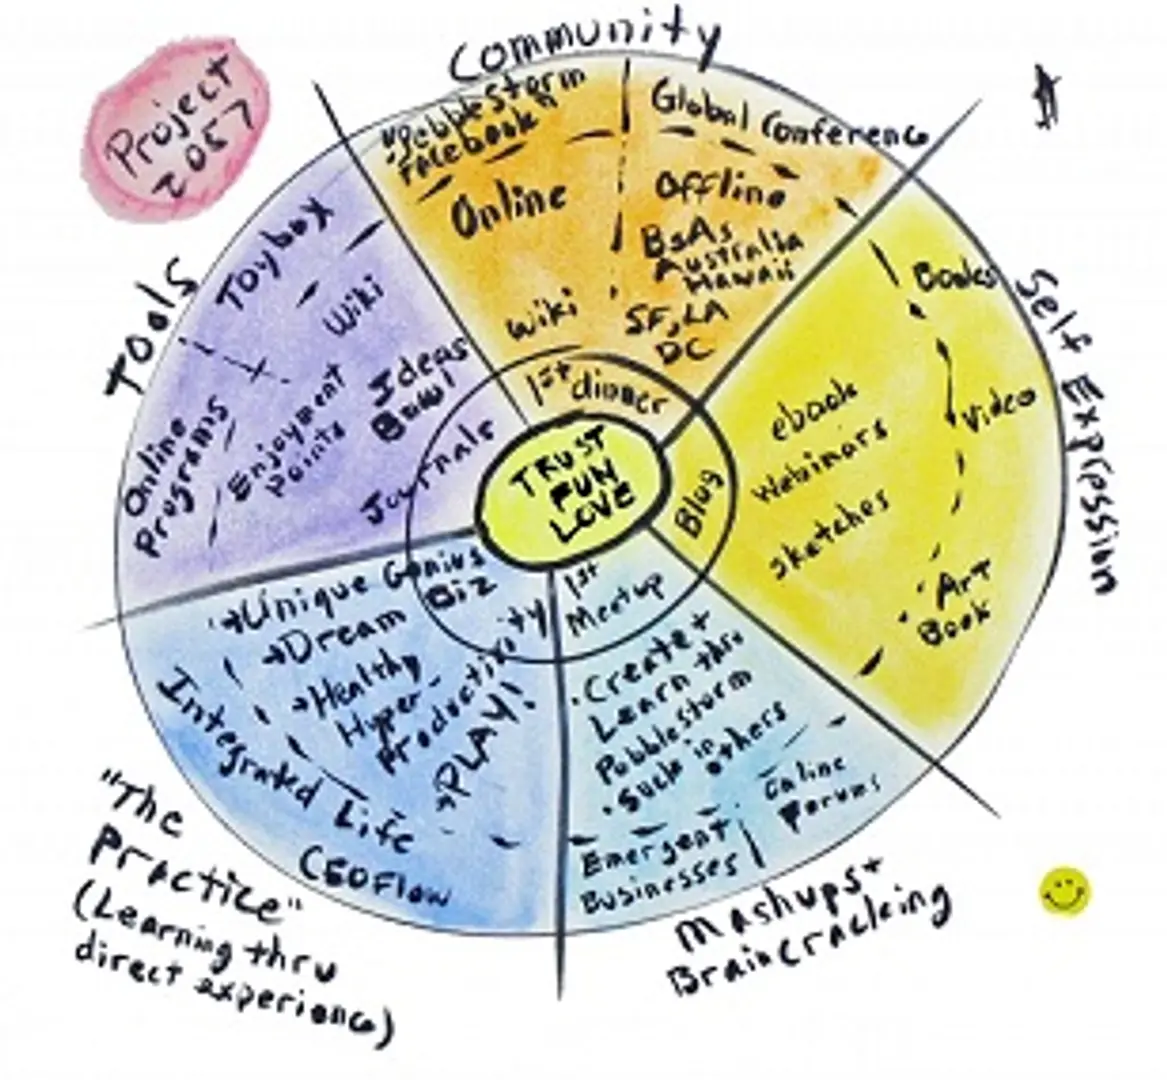 Project
2057
Community
"PebbleStorm
Facebook"
Online
Wiki
Global Conference
Offline
BsAs
Australia
Hawaii
SF, LA
DC
1st dinner
$
Self Expression
Books
Video
Art
Book
ebook
Webinars
sketches
Blog
TRUST
FUN
LOVE
Tools
Toybox
Wiki
Ideas
Bowl
Enjoyment
points
Journals
Online
Programs
→Unique Genius
Biz
→Dream
→Healthy
Hyper-
Productivity
→PLAY!
Integrated Life
CEOFlow
"The
Practice"
(Learning thru
direct experience)
1st
Meetup
·Create +
Learn thru
PebbleStorm
·Suck in
others
Online
Forums
Emergent
Businesses
Mashups+
Braincracking